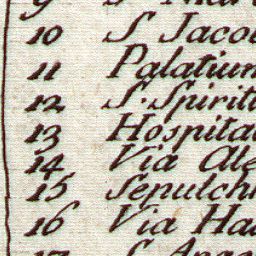 10 S Jaco
11 Palatium
12 S. Spirit
13 Hospita
14 Via Ale
15 Sepulch
16 Via Ha